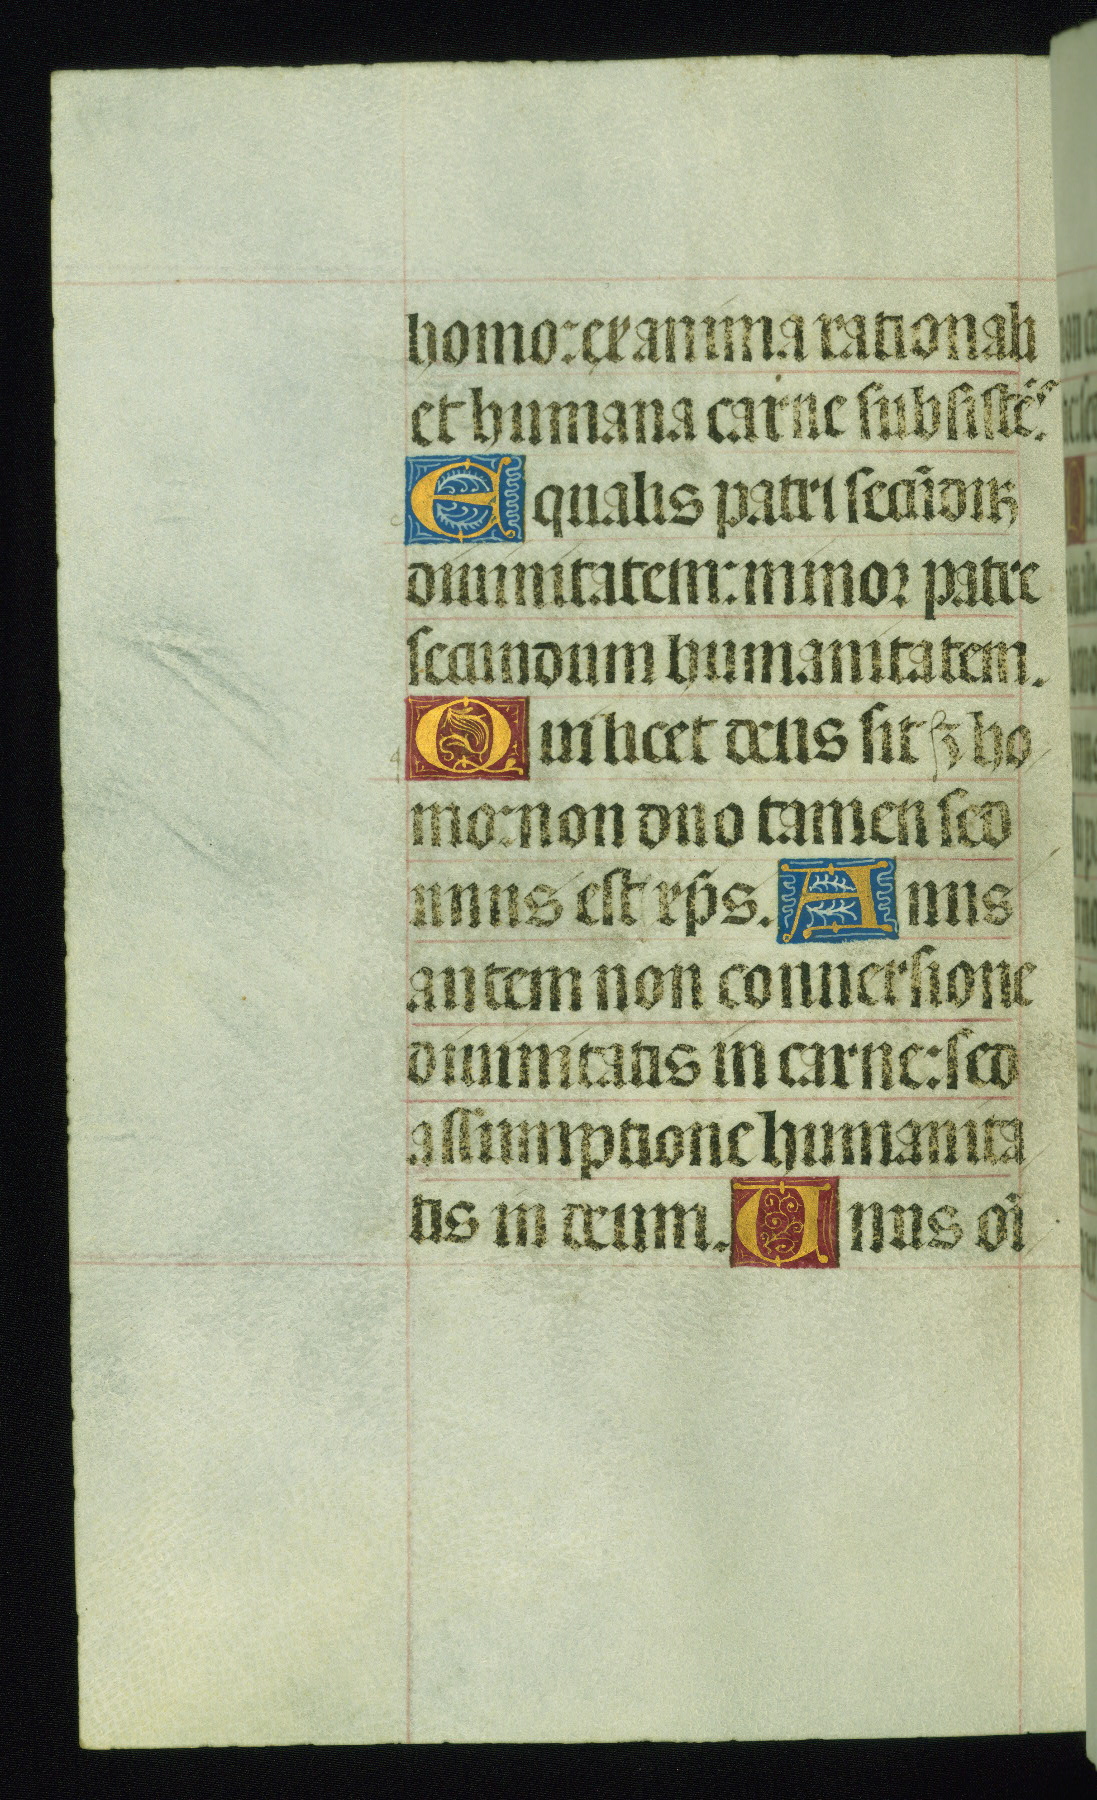 homo: ex anima rationali
et humana carne subsistē⁹.
Equalis patri secūdū
diuinitatem: minor patre
secundum humanitatem.
Qui licet deus sit ꝫ ho
mo: non duo tamen sed
unus est xp̄s. Anus
autem non conuersione
diuinitatis in carne: sed
assumptione humanita
tis in deum. Unus oī